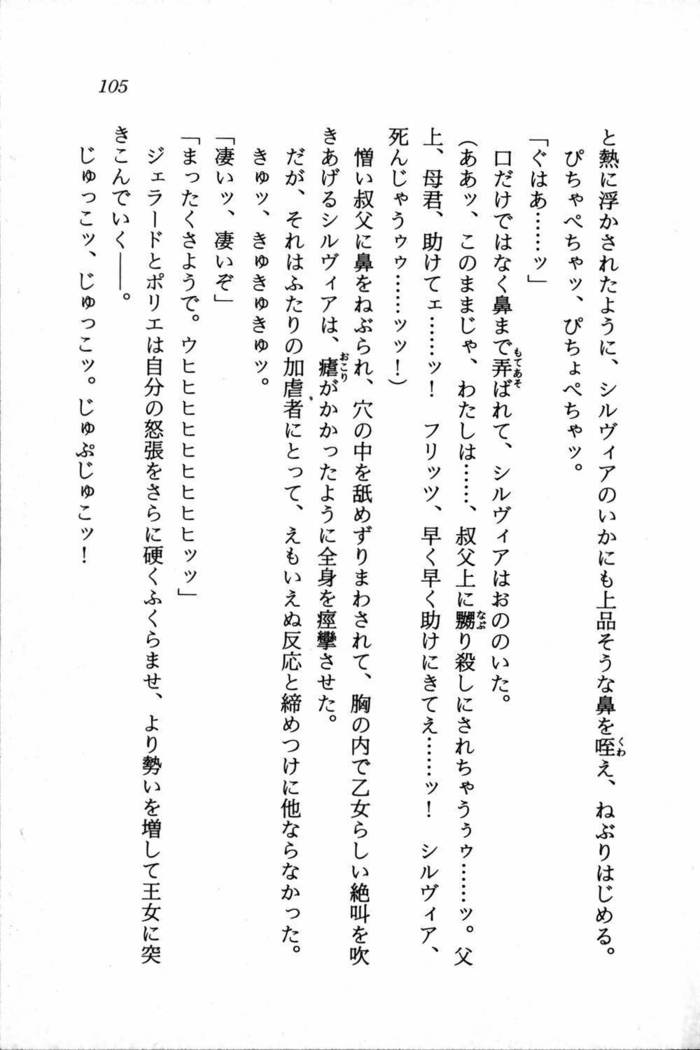 105
と熱に浮かされたように、シルヴィアのいかにも上品そうな鼻を咥え、ねぶりはじめる。
ぴちゃぺちゃッ、ぴちょぺちゃッ。
「ぐはあ……ッ」
口だけではなく鼻まで弄ばれて、シルヴィアはおののいた。
(ああッ、このままじゃ、わたしは……、叔父上に嬲り殺しにされちゃうぅゥ……ッ。父
上、母君、助けてェ……ッ! フリッツ、早く早く助けにきてえ……ッ! シルヴィア、
死んじゃうゥゥ……ッッ!)
憎い叔父に鼻をねぶられ、穴の中を舐めずりまわされて、胸の内で乙女らしい絶叫を吹
きあげるシルヴィアは、瘧がかかったように全身を痙攣させた。
だが、それはふたりの加虐者にとって、えもいえぬ反応と締めつけに他ならなかった。
きゅッ、きゅきゅきゅッ。
「凄いッ、凄いぞ」
「まったくさようで。ウヒヒヒヒヒヒヒヒッッ」
ジェラードとポリエは自分の怒張をさらに硬くふくらませ、より勢いを増して王女に突
きこんでいく――。
じゅっこッ、じゅっこッ。じゅぷじゅこッ!